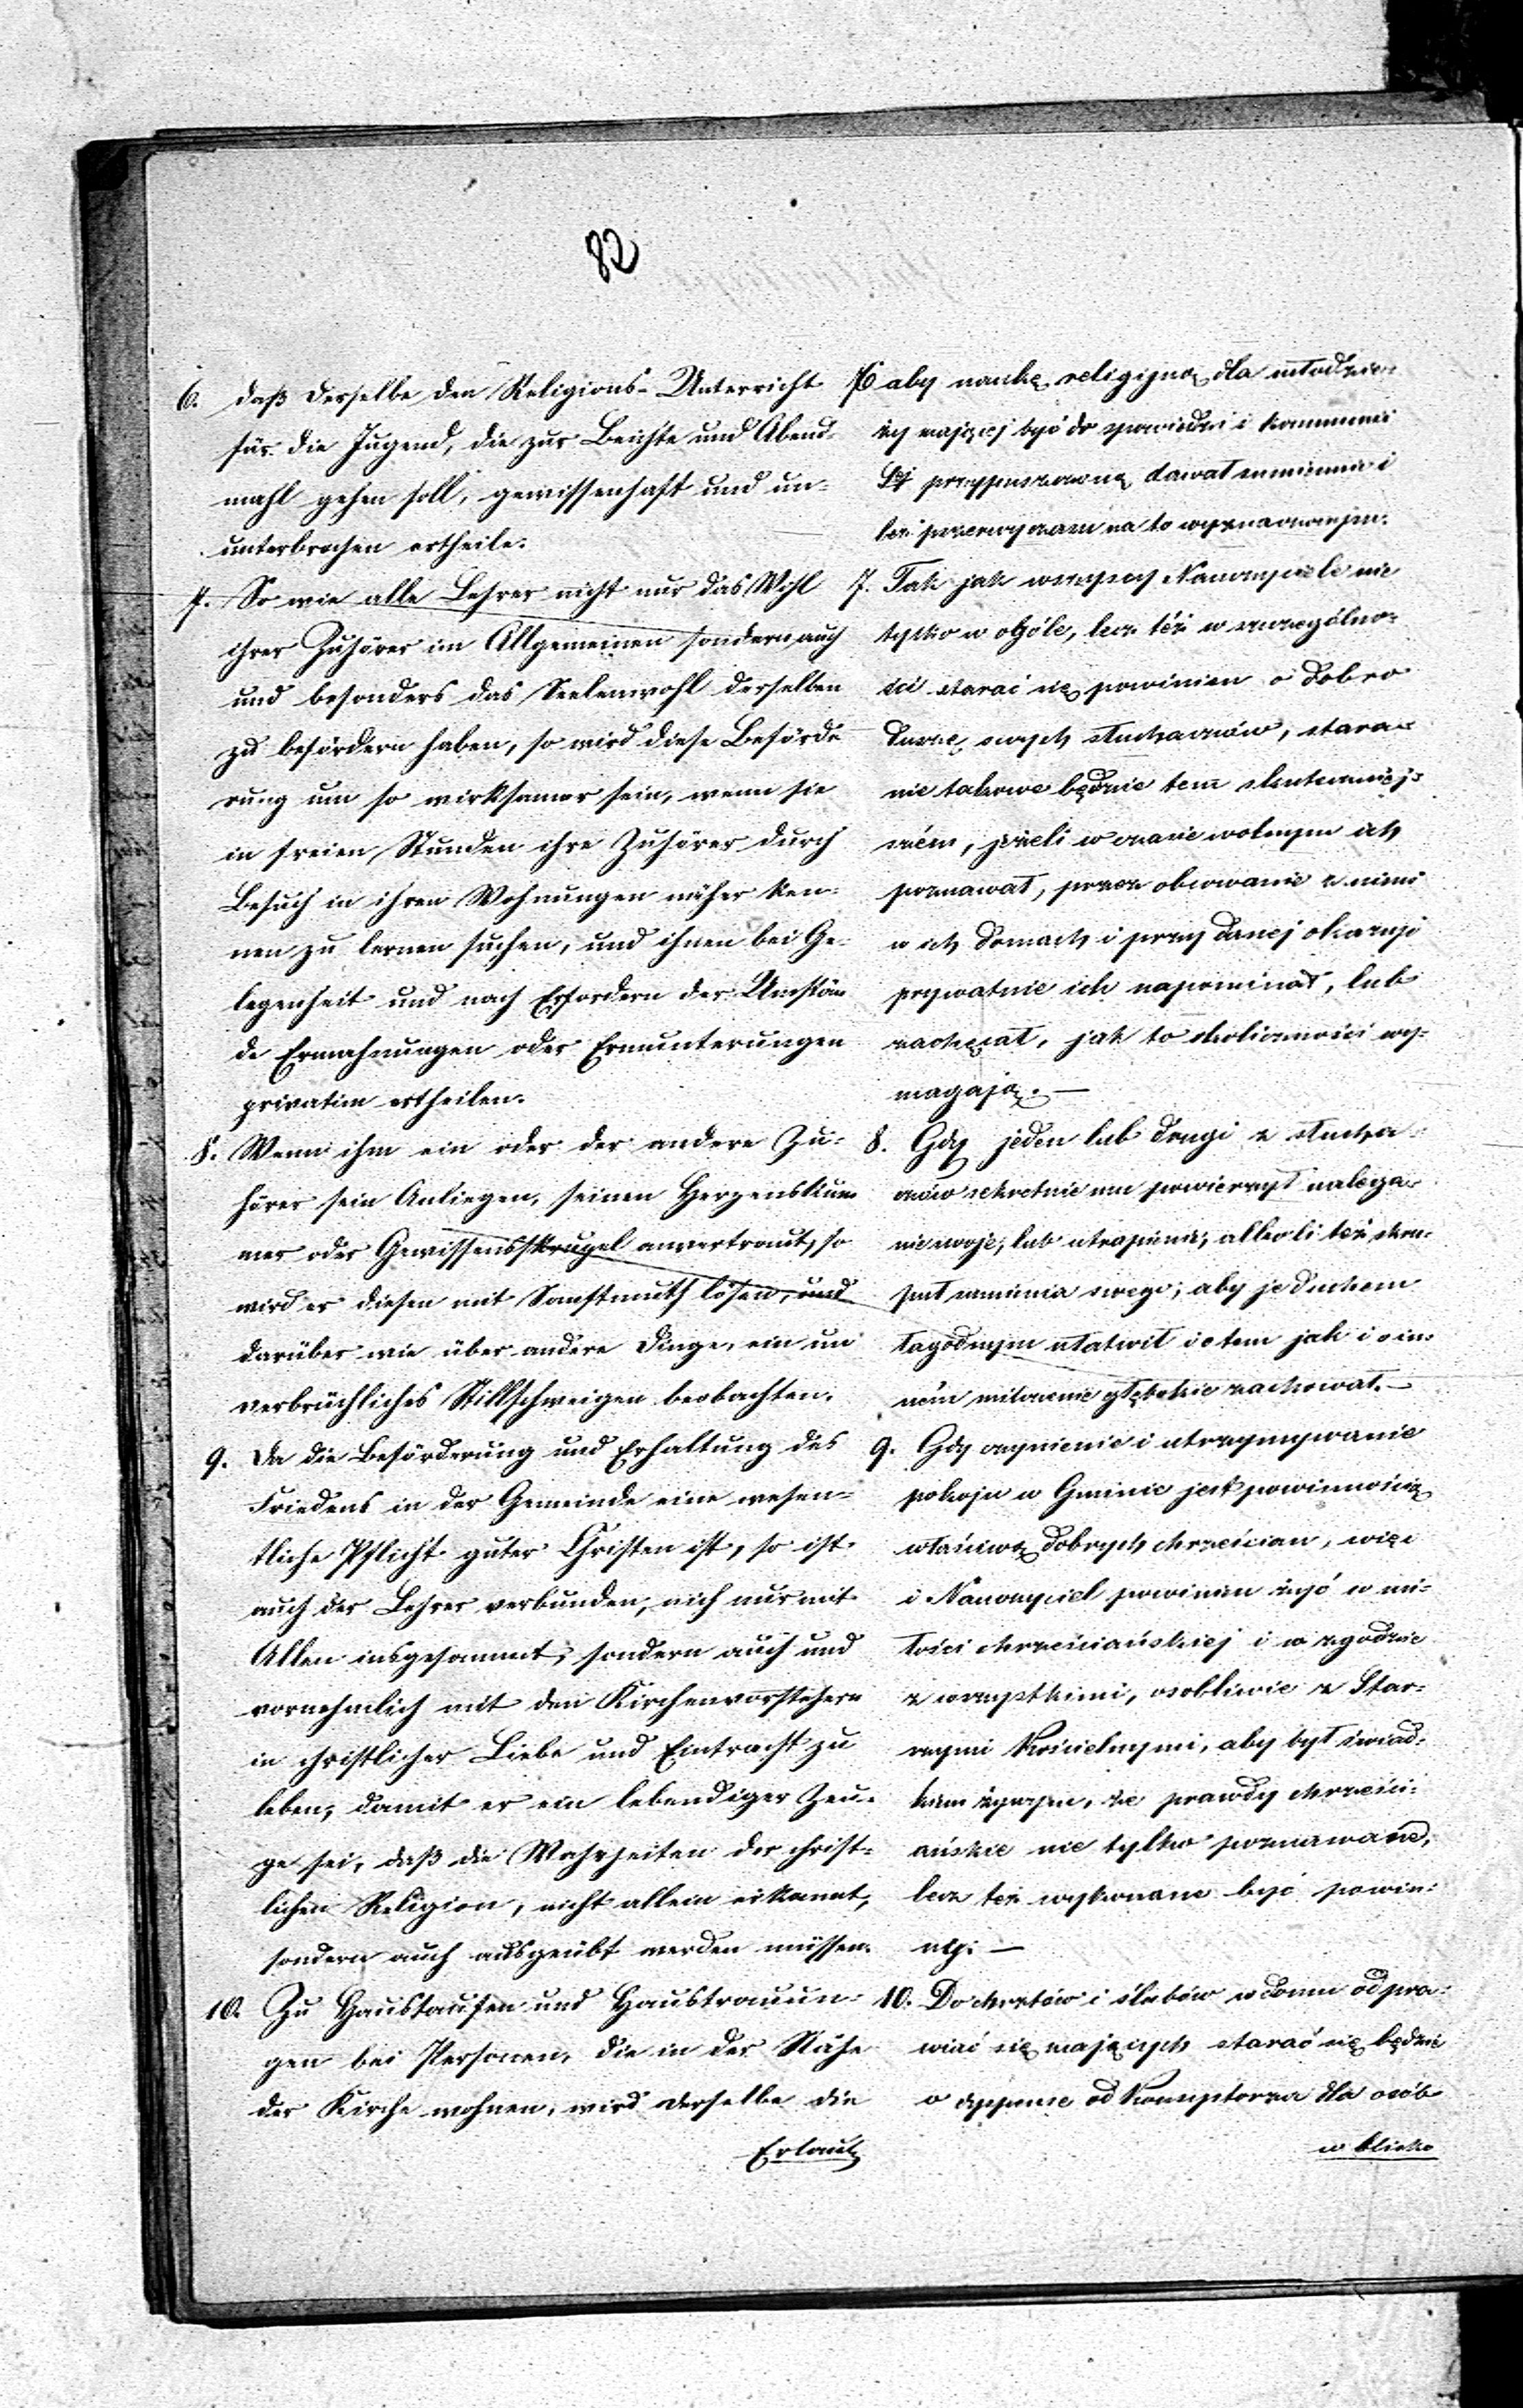 82
6. daß derselbe den Religions-Unterricht
für die Jugend, die zur Beichte und Abend-
mahl gehen soll, gewissenhaft und un-
unterbrochen ertheile.
7. So wie alle Lehrer nicht nur das Wohl
ihrer Zuhörer im Allgemeinen sondern auch
und besonders das Seelenwohl derselben
zu befördern haben, so wird diese Beförde
rung um so wirksamer sein, wenn sie
in freien Stunden ihre Zuhörer durch
Besuch in ihren Wohnungen näher ken-
nen zu lernen suchen, und ihnen bei Ge-
legenheit und nach Erfordern der Umstän
de Ermahnungen oder Ermunterungen
privatim ertheilen.
8. Wenn ihm ein oder der andere Zu-
hörer sein Anliegen, seinen Herzenskum
mer oder Gewissensskrupel anvertraut, so
wird er diesen mit Sanftmuth lösen, und
darüber wie über andere Dinge, ein un
verbrüchliches Stillschweigen beobachten.
9. Da die Beförderung und Erhaltung des
Friedens in der Gemeinde eine wesen-
tliche Pflicht guter Christen ist, so ist
auch der Lehrer verbunden, nich nur mit
Allen insgesammt, sondern auch und
vornehmlich mit den Kirchenvorstehern
in christlicher Liebe und Eintracht zu
leben, damit er ein lebendiger Zeu-
ge sei, daß die Wahrheiten der christ-
lichen Religion, nicht allein erkannt,
sondern auch ausgeübt werden müssen.
10. Zu Haustaufen und Haustrauun-
gen bei Personen, die in der Nähe
der Kirche wohnen, wird derselbe die
Erlaub
6 aby naukę religijną dla młodzie-
ży mającej być do spowiedzi i kommunii
Sej przypuszczoną dawał sumiennie i
bez przerwy czasu na to wyznaczonym.
7. Tak jak wszyscy Nauczyciele nie
tylko w ogóle, lecz téż w szczególno-
ści starać się powinien o dobro
duszę swych słuchaczów, stara-
nie takowe będzie tem skuteczniej-
szém, jeżeli w czasie wolnym ich
poznawał, przez obcowanie z nimi
w ich domach i przy danej okazyi
prywatnie ich napominał, lub
zachęcał, jak to okoliczności wy-
magają. —
8. Gdy jeden lub drugi z słucha-
czów sekretnie mu powierzył nalega-
nie swoje, lub utrapienia, albo li też skru-
puł sumienia swego, aby je duchem
łagodnym ułatwił i o tem jak i o in-
ném milczenie głębokie zachował. —
9. Gdy czynienie i utrzymywanie
pokoju w Gminie jest powinnością
właściwą dobrych chrześcian, więc
i Nauczyciel powinien żyć w mi-
łości chrześciańskiej i w zgodzie
z wszystkimi, osobliwie z Star-
szymi Kościelnymi, aby był świad-
kiem żywym, że prawdy chrześci-
ańskie nie tylko poznawane,
lecz też wykonane być powin-
ny. —
10. Do chrztów i ślubów w domu odpra-
wiać się mających starać się będzie
o dyspense od Konsystorza dla osób
w blisko